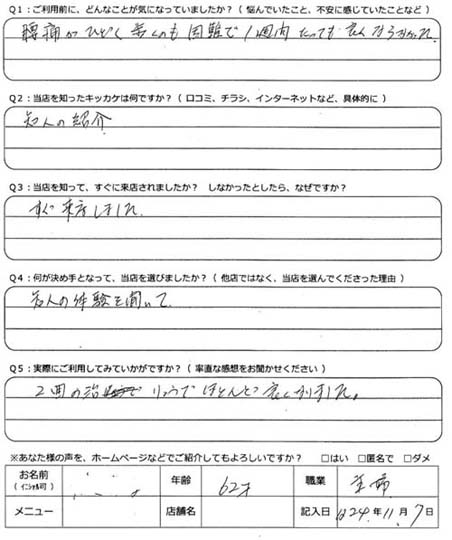 Q1:ご利用前に、どんなことが気になっていましたか?( 悩んでいたこと、不安に感じていたことなど )
腰痛がひどく歩くのも困難で1週間たっても良くならなかった。
Q2:当店を知ったキッカケは何ですか?( 口コミ、チラシ、インターネットなど、具体的に )
知人の紹介
Q3:当店を知って、すぐに来店されましたか? しなかったとしたら、なぜですか?
すぐ来店しました。
Q4:何が決め手となって、当店を選びましたか?( 他店ではなく、当店を選んでくださった理由 )
知人の体験を聞いて
Q5:実際にご利用してみていかがですか?( 率直な感想をお聞かせください )
2回の治 りょうでほとんど良くなりました。
※あなた様の声を、ホームページなどでご紹介してもよろしいですか? □はい □匿名で □ダメ
お名前 (イニシャル可) 年齢 62才 職業 主婦
メニュー 店舗名 記入日 H24年11月7日